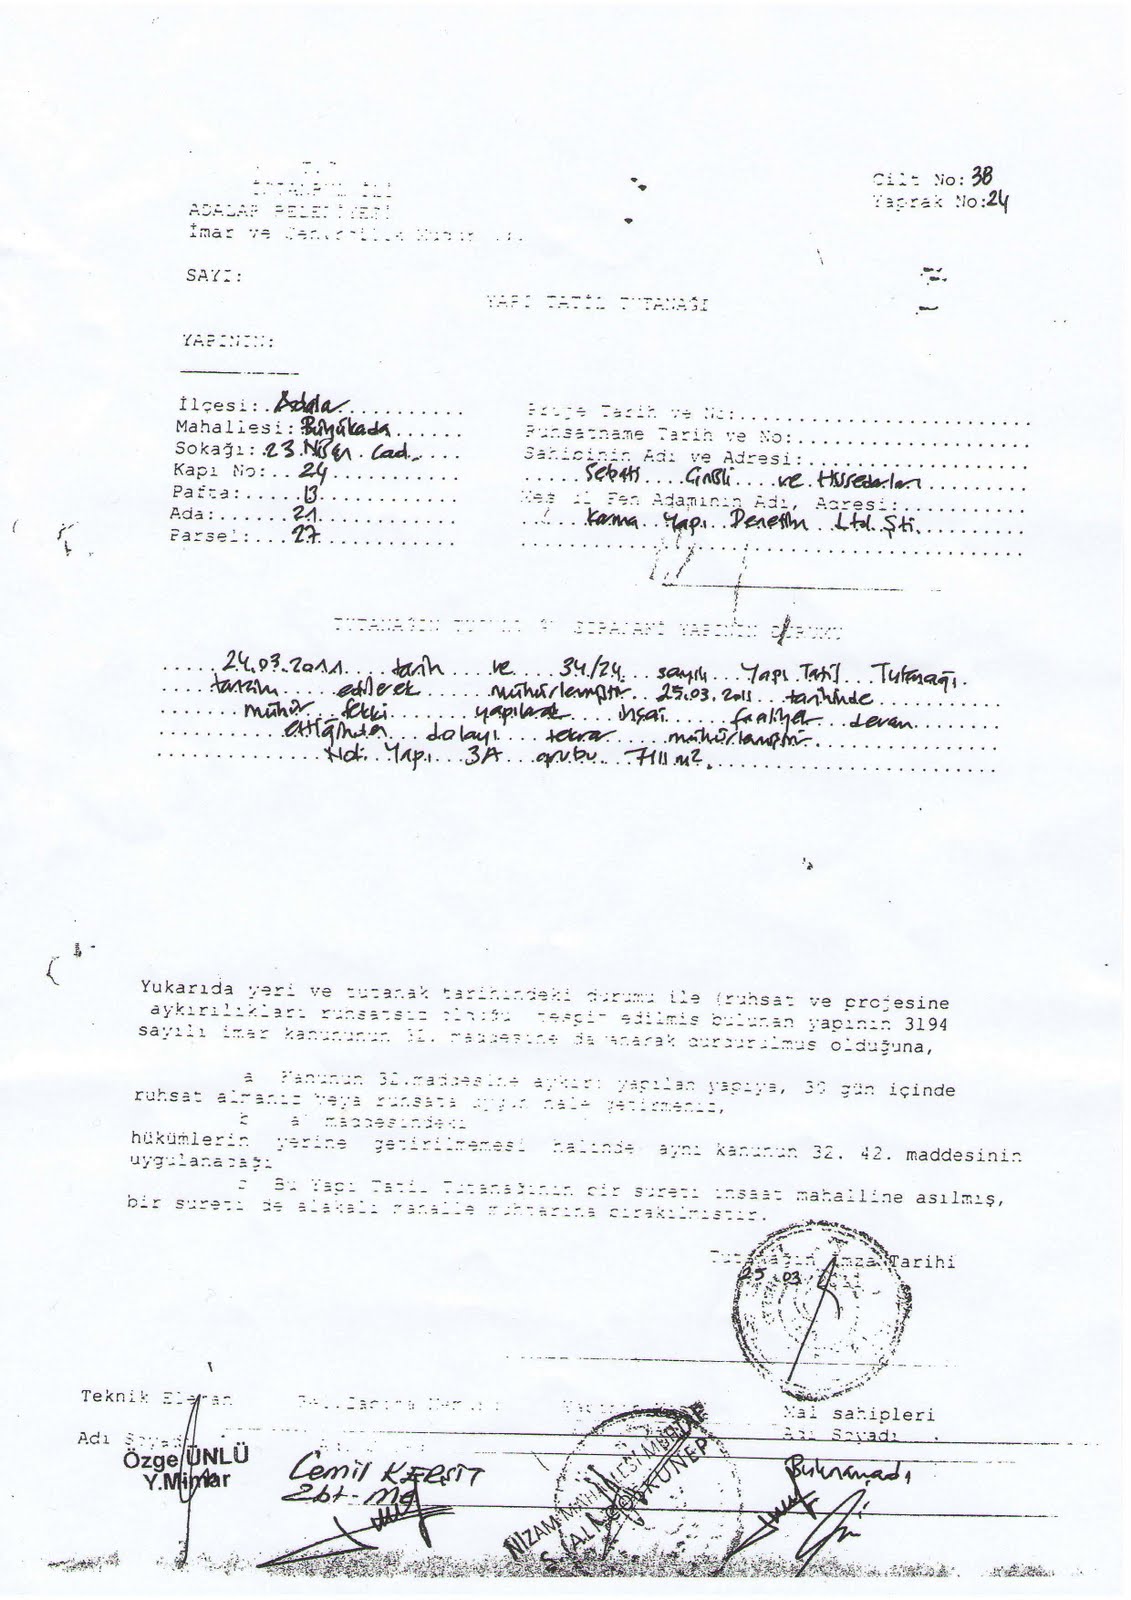 T.C
İSTANBUL İLİ
ADALAR BELEDİYESİ
İmar ve Şehircilik
Cilt No: 38
Yaprak No: 24
SAYI:
YAPI TATİL TUTANAĞI
YAPININ:
İlçesi: Adalar
Mahallesi: Büyükada
Sokağı: 23 Nisan Cad.
Kapı No: 24
Pafta: 13
Ada: 21
Parsel: 27
Proje Tarih ve No:
Ruhsatname Tarih ve No:
Sahibinin Adı ve Adresi:
Sebati ve Hissedarları
Fen Adamının Adı, Adresi:
Karma Yapı Denetim Ltd. Şti.
TUTANAĞIN SIRADAKİ YAPININ DURUMU
24.03.2011 tarih ve 34/24 sayılı Yapı Tatil Tutanağı
tanzim edilerek mühürlenmiştir 25.03.2011 tarihinde
mühür fekki yapılarak inşai faaliyet devam
ettiğinden dolayı tekrar mühürlenmiştir.
Not: Yapı 3A grubu 711 m2.
Yukarıda yeri ve tutanak tarihindeki durumu ile (ruhsat ve projesine
aykırılıkları ruhsatsız olduğu tespit edilmis bulunan yapının 3194
sayılı imar kanununun 32. maddesine dayanarak durdurulmus olduğuna,
a Kanunun 32.maddesine aykırı yapılan yapıya, 30 gün içinde
ruhsat almanız veya ruhsata uygun hale getirmeniz,
b a maddesindeki
hükümlerin yerine getirilmemesi halinde aynı kanunun 32. 42. maddesinin
uygulanacağı
c Bu Yapı Tatil Tutanağının bir sureti insaat mahalline asılmış,
bir sureti de alakalı mahalle muhtarına bırakılmıştır.
Tutanağın imza Tarihi
25 03 2011
Teknik Eleman
Mal sahipleri
Adı Soyadı
Adı Soyadı
Özge ÜNLÜ
Y.Mimar
Cemil KERSİT
Zbt-Me
NİZAM MAHALLESİ MUHTARI
Bulunamadı